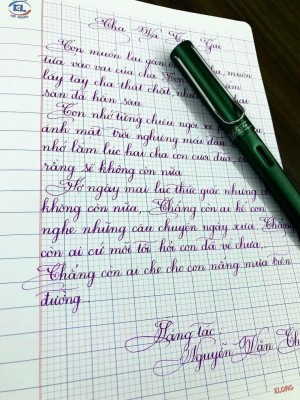 Cha Và Con Gái
Con muốn lại gần muốn
tựa vào vai của cha
lấy tay cha thật chặt,
sạn đã hằn sâu
Con nhớ từng chiều ngồi xe
ánh mặt trời nghiêng mái đầu
nhớ lắm lúc hai cha con cười đùa,
rằng sẽ không còn nữa
Rồi ngày mai lúc thức giấc những
không còn nữa, Chẳng còn ai kể con
nghe những câu chuyện ngày xưa Chẳng
còn ai cứ mỗi tối hỏi con đã về chưa.
Chẳng còn ai che cho con nắng mưa trên
đường...
Sáng tác:
Nguyễn Văn Ch
KLONG